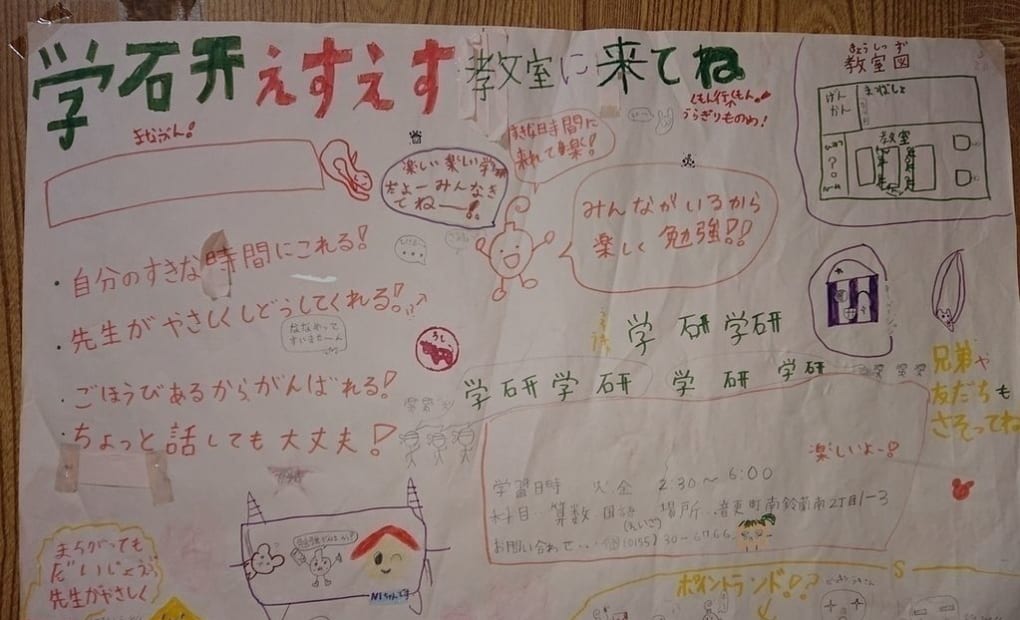 学研えすえす教室に来てね
きょうしつず
教室図
げん
かん
教室
くもん行くもん!
うらぎりものめ!
すきな時間に
来れて楽!
楽しい楽しい学研
だよーみんなき
てねー!!
みんながいるから
楽しく勉強!!
・自分のすきな時間にこれる!
・先生がやさしくしどうしてくれる!
ななめって
すいませーん
・ごほうびあるからがんばれる!
・ちょっと話しても大丈夫!
学研学研
学研学研 学研 学研
兄弟や
友だちも
さそってね
楽しいよー!
学習日時 火金 2:30〜6:00
科目 算数 国語 場所 音更町南鈴蘭南2丁目1-3
(えいご)
お問い合わせ… (0155)30-6766
まちがっても
だいじょうぶ
先生がやさしく
ポイントランド!?